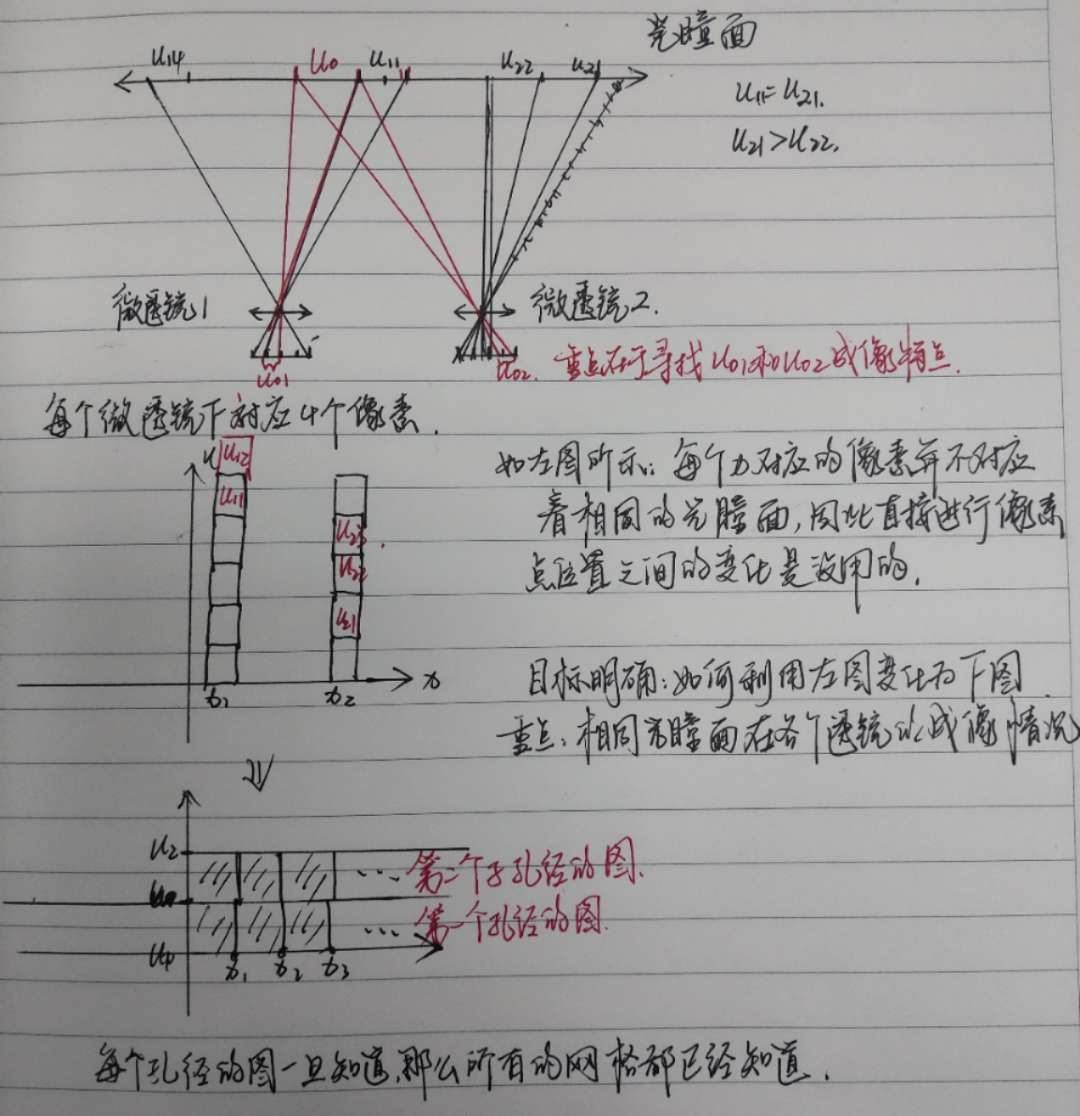 光瞳面
u14 u0 u11 u22 u21
u11=u21.
u21>u22.
微透镜1
微透镜2.
u01
u02. 重点在于寻找u01和u02成像特点.
每个微透镜下对应4个像素.
u u12
u11
u23.
u22
u21
x1 x2 x
如左图所示: 每个x对应的像素并不对应
着相同的光瞳面,因此直接进行像素
点位置之间的变化是没用的.
目标明确:如何利用左图变化为下图.
重点:相同光瞳面在各个透镜的成像情况
u2
... 第二个子孔径的图.
... 第一个孔径的图.
x1 x2 x3
每个孔径的图一旦知道,那么所有的网格都已经知道.